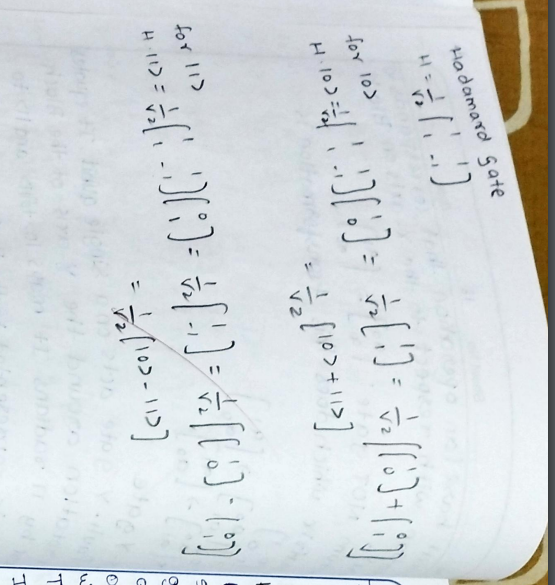 Hadamard Gate
H = 1/√2 [1 1; 1 -1]
for |0>
H·|0> = 1/√2 [1 1; 1 -1] [1; 0] = 1/√2 [1; 1] = 1/√2 [[1; 0] + [0; 1]]
= 1/√2 [|0> + |1>]
for |1>
H·|1> = 1/√2 [1 1; 1 -1] [0; 1] = 1/√2 [1; -1] = 1/√2 [[1; 0] - [0; 1]]
= 1/√2 [|0> - |1>]